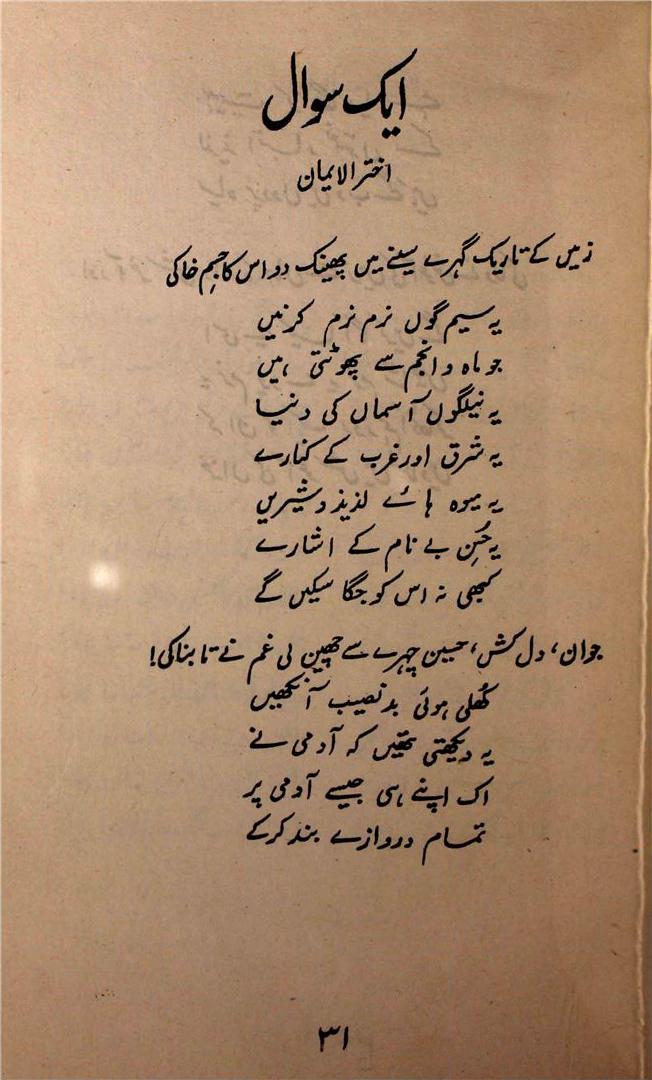 ایک سوال
اختر الایمان
زمیں کے تاریک گہرے سینے میں پھینک دو اس کا جسمِ خاکی
یہ سیم گوں نرم نرم کرنیں
جو ماہ و انجم سے پھوٹتی ہیں
یہ نیلگوں آسماں کی دنیا
یہ شرق اور غرب کے کنارے
یہ میوہ ہائے لذیذ و شیریں
یہ حُسنِ بے نام کے اشارے
کبھی نہ اس کو جگا سکیں گے
جوان، دل کش، حسین چہرے سے چھین لی غم نے تابناکی!
کھُلی ہوئی بد نصیب آنکھیں
یہ دیکھتی تھیں کہ آدمی نے
اک اپنے ہی جیسے آدمی پر
تمام دروازے بند کر کے
۳۱